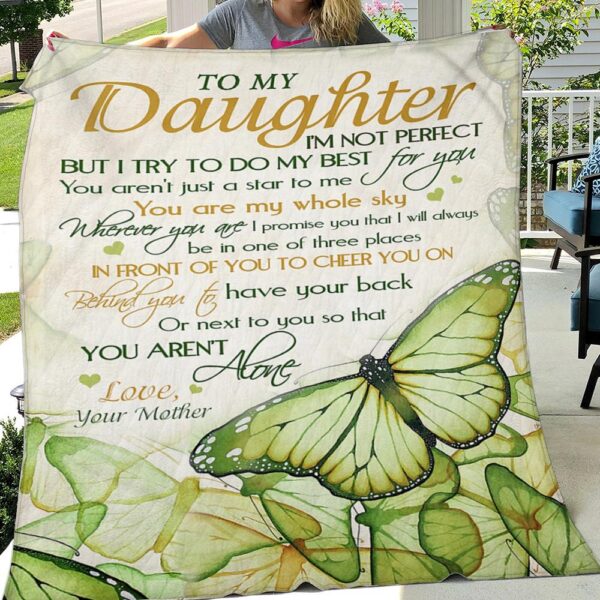 TO MY
Daughter
I'M NOT PERFECT
BUT I TRY TO DO MY BEST for you
You aren't just a star to me
You are my whole sky
Wherever you are I promise you that I will always
be in one of three places
IN FRONT OF YOU TO CHEER YOU ON
Behind you to have your back
Or next to you so that
YOU AREN'T Alone
Love,
Your Mother